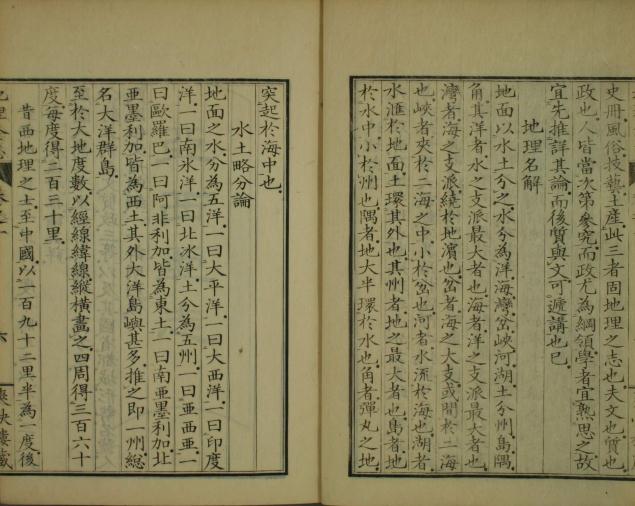 史冊風俗技藝土產此三者固地理之史也夫文也質也
政也人皆當次第參究而政尤為綱領學者宜熟思之故
宜先推詳其論而後質與文可遞講也已
地理名解
地面以水土分之水分為洋海灣岔峽河湖土分州島隅
角其洋者水之支派最大者也海者洋之支派最大者也
灣者海之支派繞於地濱也岔者海之大支或間於二海
也峽者夾於二海之中小於岔也河者水流於海也湖者
水滙於地面土環其外也其州者地之最大者也島者地
於水中小於州也隅者地大半環於水也角者彈丸之地
突起於海中也
水土略分論
地面之水分為五洋一曰大平洋一曰大西洋一曰印度
洋一曰南氷洋一曰北氷洋土分為五州一曰亞西亞一
曰歐羅巴一曰阿非利加皆為東土一曰南亞墨利加北
亞墨利加皆為西土其外大洋島嶼甚多推之即一州總
名大洋群島
至於大地度數以經線緯線縱橫畫之四周得三百六十
度每度得二百三十里
昔西地理之士至中國以一百九十二里半為一度後
地理全志 卷之一 六